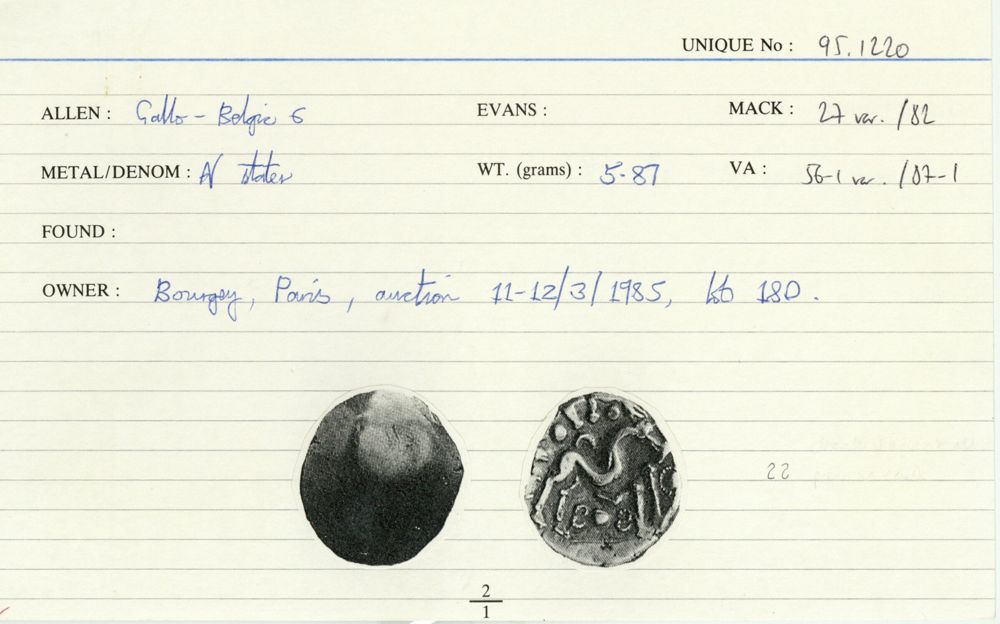 UNIQUE No : 95.1220
ALLEN : Gallo-Belgic G EVANS : MACK : 27 var. /82
METAL/DENOM : AV stater WT. (grams) : 5.87 VA : 56-1 var. /87-1
FOUND :
OWNER : Bourgey, Paris, auction 11-12/3/1985, lot 180.
22
2
1